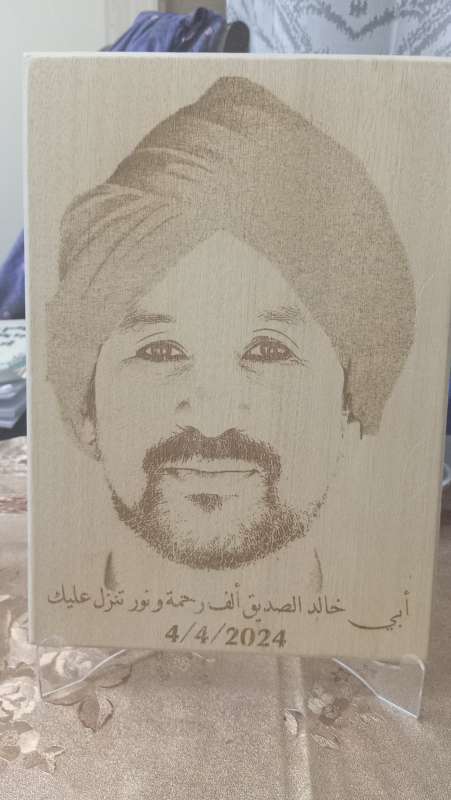 أبي خالد الصديق ألف رحمة ونور تنزل عليك
4/4/2024